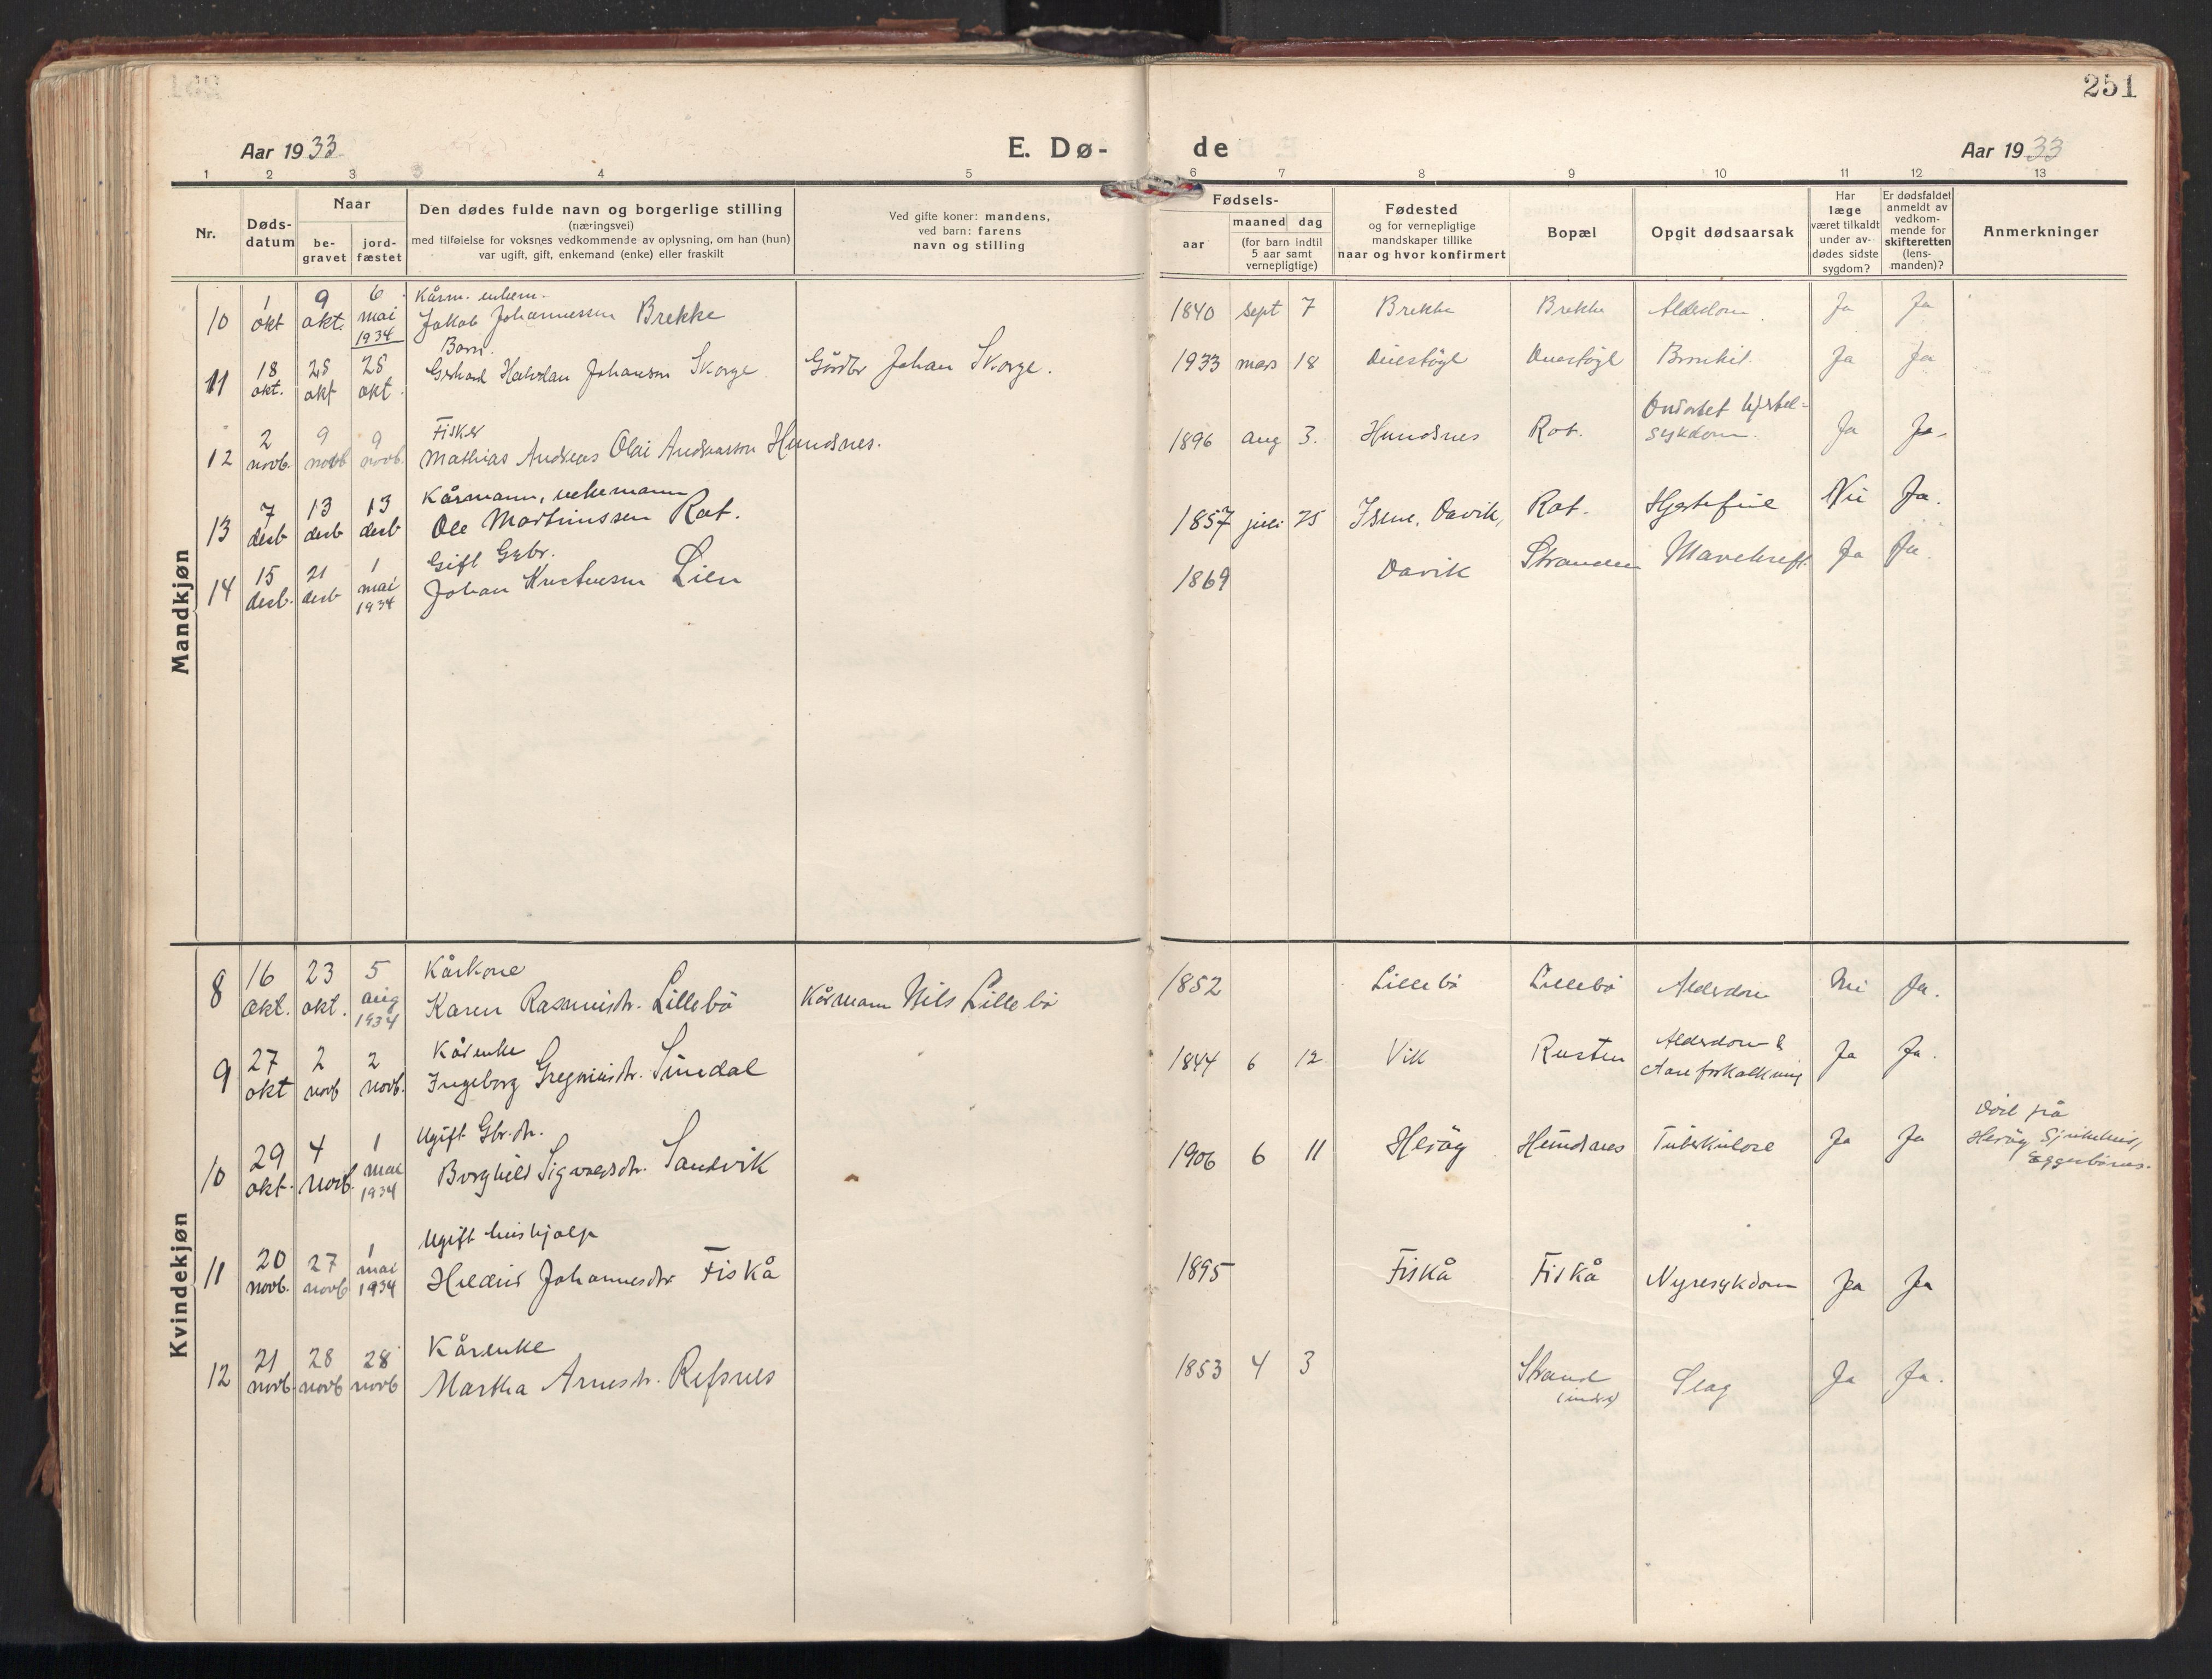 251
Aar 1933
E. Dø-
de
Aar 1933
1 2 3 4 5 6 7 8 9 10 11 12 13
Nr.
Døds-
datum
Naar
be-
gravet
jord-
fæstet
Den dødes fulde navn og borgerlige stilling
(næringsvei)
med tilføielse for voksnes vedkommende av oplysning, om han (hun)
var ugift, gift, enkemand (enke) eller fraskilt
Ved gifte koner: mandens,
ved barn: farens
navn og stilling
Fødsels-
aar
maaned dag
(for barn indtil
5 aar samt
vernepligtige)
Fødested
og for vernepligtige
mandskaper tillike
naar og hvor konfirmert
Bopæl
Opgit dødsaarsak
Har
læge
været tilkaldt
under av-
dødes sidste
sygdom?
Er dødsfaldet
anmeldt av
vedkom-
mende for
skifteretten
(lens-
manden)?
Anmerkninger
Mandkjøn
10 1 okt 9 okt. 6 mai 1934
Kårm. enkem.
Jakob Johannessen Brekke
1840 sept 7 Brekke Brekke Alderdom. Ja Ja
11 18 okt. 25 okt 25 okt.
Barn.
Gerhard Halvdan Johansen Skorge Gårdbr Johan Skorge.
1933 mars 18 Ja Ja
12 2 novb. 9 novb 9 novb.
Fisker
Mathias Andreas Olai Andreassen Hundsnes.
1896 aug 3. Hundsnes Rot. sykdom. Ja Ja
13 7 desb 13 desb 13 desb
Kårmann, enkemann
Ole Martinussen Rot.
1857 juli 25 Isene, Davik, Rot. Hjertefeil Nei Ja.
14 15 desb. 21 desb 1 mai 1934
Gift Gbr.
Johan Lien
1869 Davik Stranden Mavekreft. Ja Ja.
Kvindekjøn
8 16 okt. 23 okt. 5 aug 1934
Kårkone
Karen Rasmusdtr. Lillebö Kårmann Nils Lillebö
1852 Lillebö Lillebö Alderdom Nei Ja.
9 27 okt 2 novb 2 novb.
Kårenke
Ingeborg Gregoriusdtr. Sundal
1844 6 12 Vik Rusten Alderdom &
Aareforkalkning Ja Ja.
10 29 okt. 4 novb. 1 mai 1934
Ugift Gbr.dtr.
Borghild Sigvaldsdtr. Sandvik
1906 6 11 Heröy Hundsnes Tuberkulose Ja Ja
Död på
Heröy Sjukehus,
Eggesbönes.
11 20 novb. 27 novb 1 mai 1934
Ugift hushjelp
Johannesdtr Fiskå
1895 Fiskå Fiskå Nyresykdom Ja Ja
12 21 novb. 28 novb 28 novb
Kårenke
Martha Arnesdtr. Refsnes
1853 4 3 Strand
(indre) Slag Ja Ja.